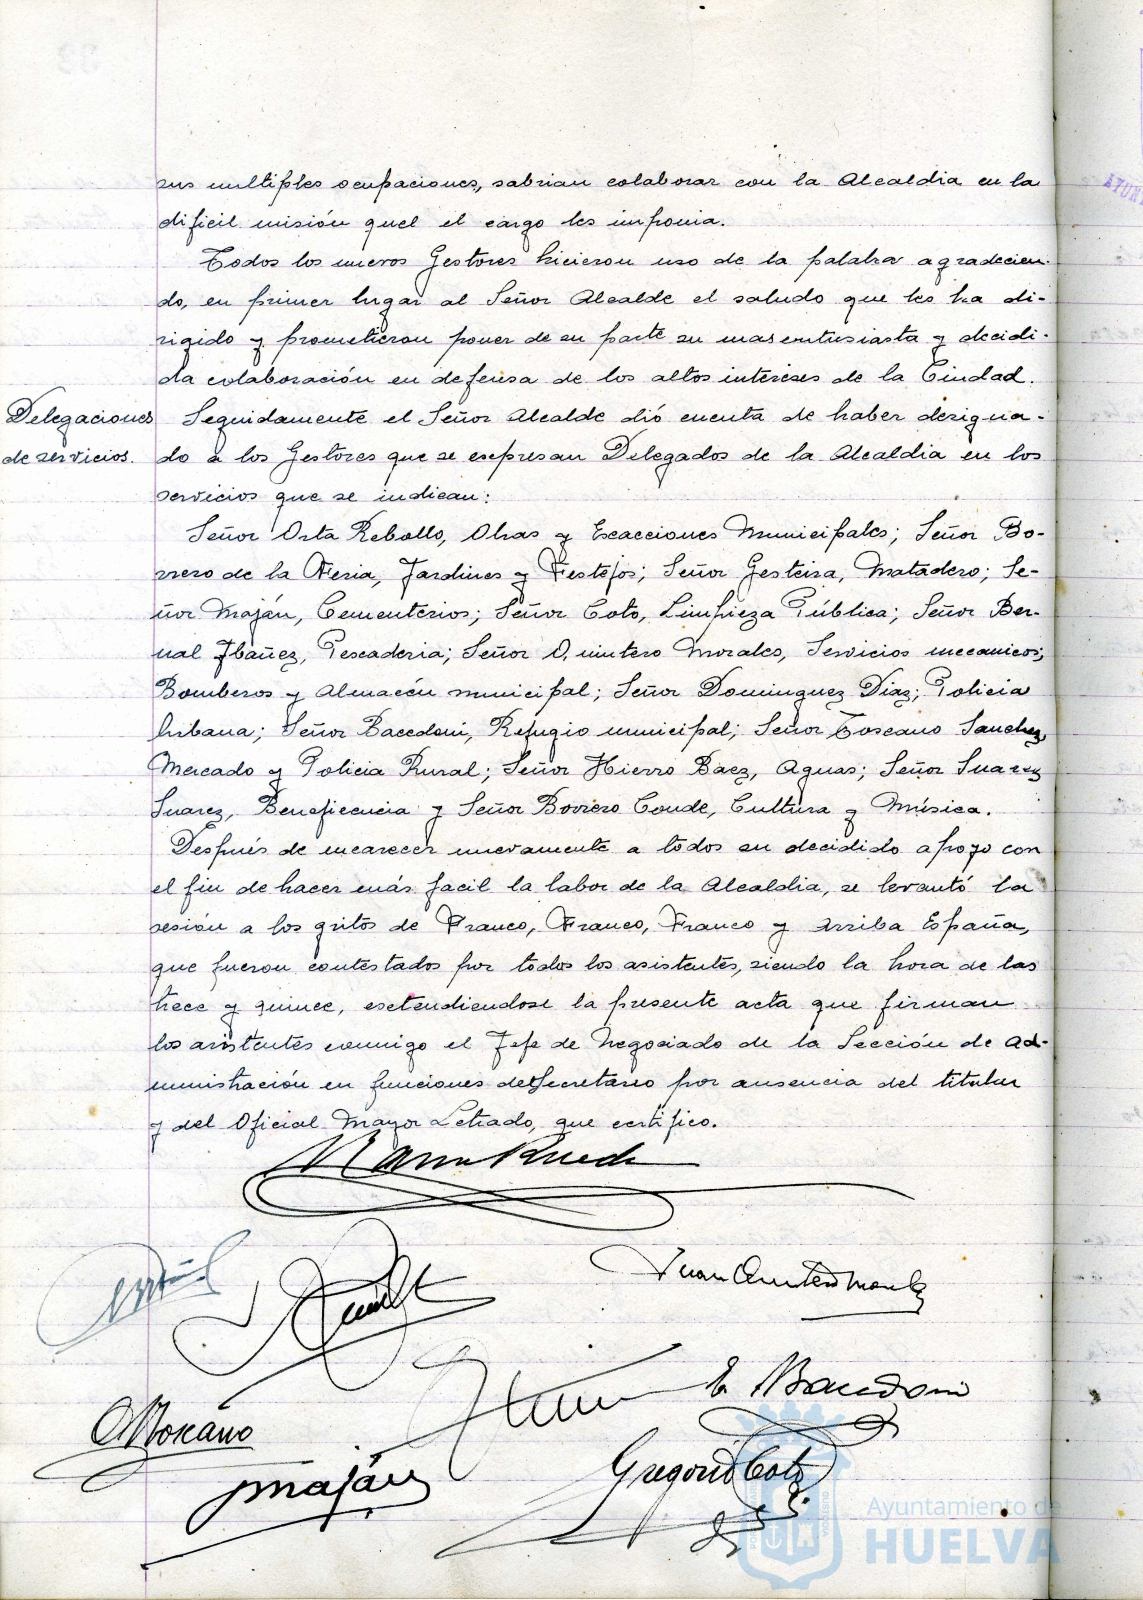 sus multiples ocupaciones, sabrian colaborar con la Alcaldia en la
dificil misión quel el cargo les imponia.
Todos los nuevos Gestores hicieron uso de la palabra agradecien-
do, en primer lugar al Señor Alcalde el saludo que les ha di-
rigido y prometieron poner de su parte su mas entusiasta y decidi-
da colaboración en defensa de los altos intereses de la Ciudad.
Delegaciones de servicios.
Seguidamente el Señor Alcalde dió cuenta de haber designa-
do a los Gestores que se expresan Delegados de la Alcaldia en los
servicios que se indican:
Señor Orta Rebollo, Obras y Exacciones Municipales; Señor Bo-
rrero de la Feria, Jardines y Festejos; Señor Gesteira, Matadero; Se-
ñor Maján, Cementerios; Señor Coto, Limpieza Pública; Señor Ber-
nal Ibañez, Pescaderia; Señor Quintero Morales, Servicios mecanicos,
Bomberos y Almacén municipal; Señor Dominguez Diaz; Policia
Urbana; Señor Bacedoni, Refugio municipal; Señor Toscano Sanchez,
Mercado y Policia Rural; Señor Hierro Baez, Aguas; Señor Suarez
Suarez, Beneficencia y Señor Borrero Conde, Cultura y Música.
Después de encarecer nuevamente a todos su decidido apoyo con
el fin de hacer más facil la labor de la Alcaldia, se levantó la
sesión a los gritos de Franco, Franco, Franco y Arriba España,
que fueron contestados por todos los asistentes, siendo la hora de las
trece y quince, extendiendose la presente acta que firman
los asistentes conmigo el Jefe de Negociado de la Sección de Ad-
ministración en funciones de Secretario por ausencia del titular
y del Oficial Mayor Letrado, que certifico.
Juan Quintero Morales
E. Bacedoni
Toscano
Gregorio Coto
Maján
Ayuntamiento de
HUELVA